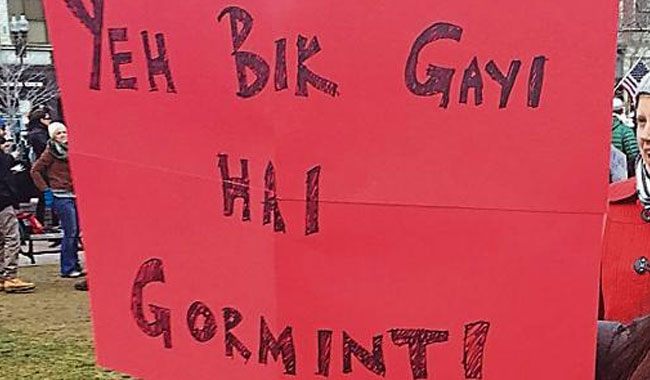 YEH BIK GAYI
HAI
GORMINTI